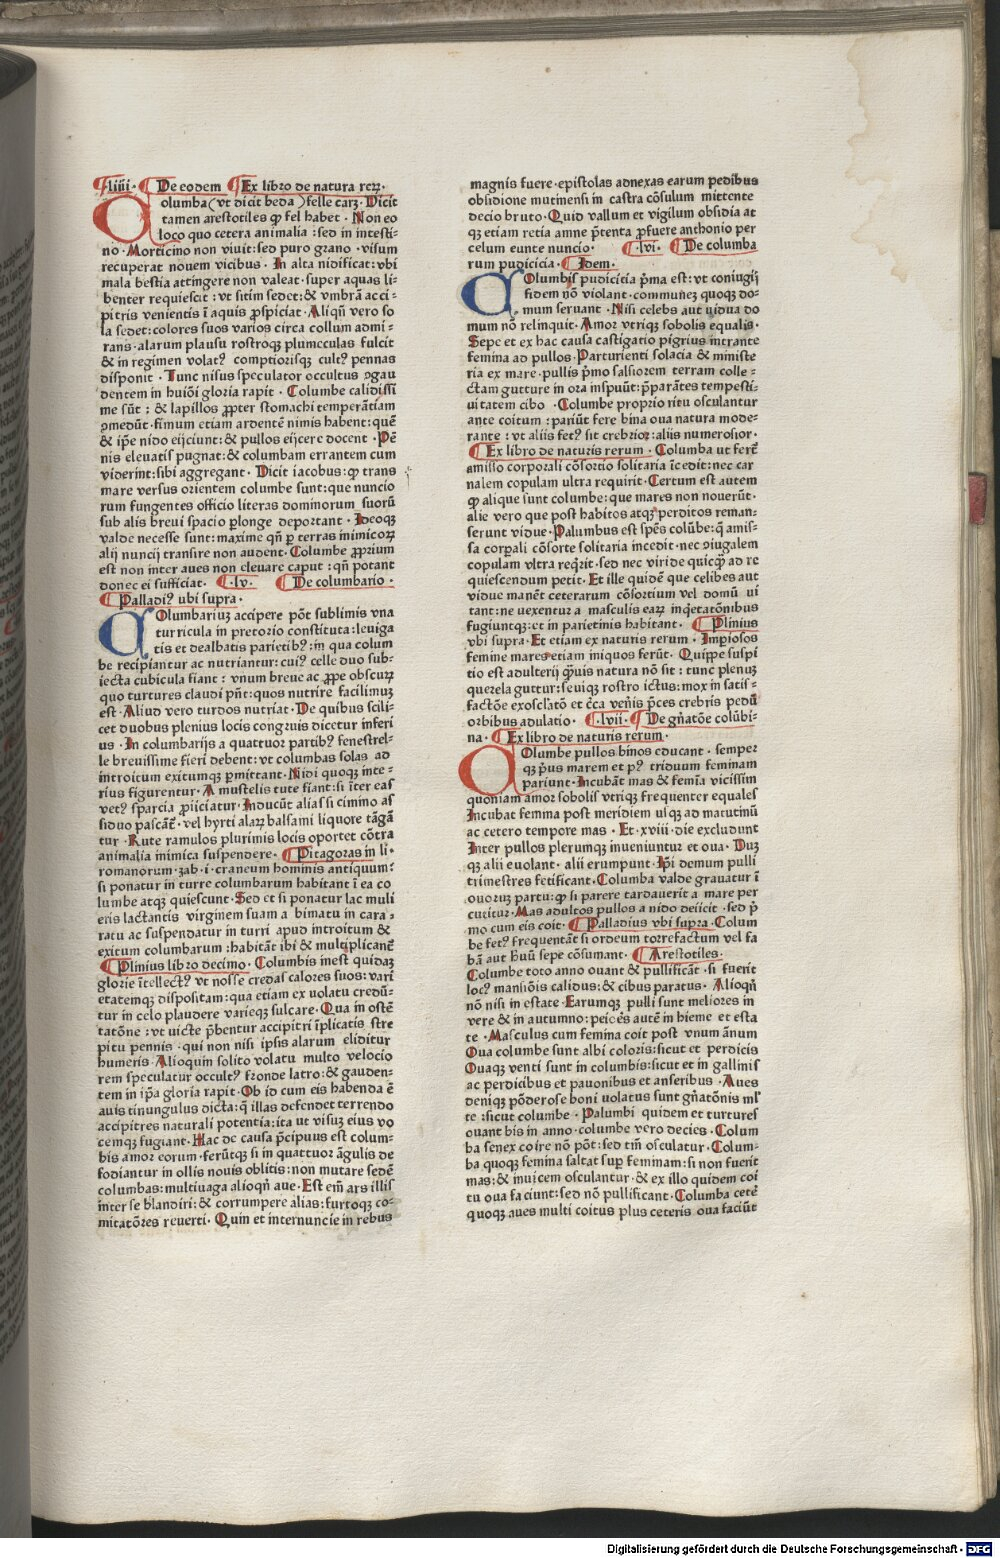 liiii. De eodem Ex libro de natura reꝝ.
Columba (vt dicit beda) felle carꝫ. Dicit
tamen arestotiles ꝙ fel habet. Non eo
loco quo cetera animalia: sed in intesti-
no. Morticino non viuit: sed puro grano. visum
recuperat nouem vicibus. In alta nidificat: vbi
mala bestia attingere non valeat. super aquas li-
benter requiescit: vt sitim sedet: & vmbrā acci-
pitris venientis ī aquis ꝓspiciat. Aliqn̄ vero so
la sedet: colores suos varios circa collum admi-
rans. alarum plausu rostroqꝫ plumcculas fulcit
& in regimen volatꝰ comptiorisqꝫ cultꝰ pennas
disponit. Tunc nisus speculator occultus ꝯgau
dentem in huiōi gloria rapit. Columbe calidissi
me sūt: & lapillos ꝓpter stomachi temperātiam
ꝯmedūt. fimum etiam ardentē nimis habent: quē
& ip̄e nido eijciunt: & pullos eijcere docent. Pē
nis eleuatis pugnāt: & columbam errantem cum
viderint: sibi aggregant. Dicit iacobus: ꝙ trans
mare versus orientem columbe sunt: que nuncio
rum fungentes officio literas dominorum suorū
sub alis breui spacio ꝑlonge deportant. Ideoqꝫ
valde necesse sunt: maxime qn̄ ꝑ terras inimicoꝝ
alij nuncij transire non audent. Columbe ꝓprium
est non inter aues non eleuare caput: qn̄ potant
donec ei sufficiat. lv. De columbario.
Palladiꝰ ubi supra.
Columbariuꝫ accipere pōt sublimis vna
turricula in pretorio constituta: leuiga
tis et dealbatis parietibꝰ: in qua colum
be recipiantur ac nutriantur: cuiꝰ celle duo sub-
iecta cubicula fiant: vnum breue ac ꝓpe obscuꝝ
quo turtures claudi pn̄t: quos nutrire facilimuꝫ
est. Aliud vero turdos nutriat. De quibus scili-
cet duobus plenius locis congruis dicetur inferi
us. In columbarijs a quattuor partibꝰ fenestrel-
le breuissime fieri debent: vt columbas solas ad
introitum exitumqꝫ ꝑmittant. Nidi quoqꝫ inte-
rius figurentur. A mustelis tute fiant: si īter eas
vetꝰ sparcia ꝓijciatur. Inducūt alias si cimino as
siduo pascāt̄. vel hyrti alaꝝ balsami liquore tāgā
tur. Rute ramulos plurimis locis oportet cōtra
animalia inimica suspendere. Pitagoras in li.
romanorum. zab. i. craneum hominis antiquum:
si ponatur in turre columbarum habitant ī ea co
lumbe atqꝫ quiescunt. Sed et si ponatur lac muli
eris lactantis virginem suam a bimatu in cara-
ratu ac suspendatur in turri apud introitum &
exitum columbarum: habitāt ibi & multiplicanẽ
Plinius libro decimo. Columbis inest quidaꝫ
glorie ītellectꝰ vt nosse credas calores suos: vari
etatemqꝫ dispositam: qua etiam ex uolatu credū-
tur in celo plaudere varieqꝫ sulcare. Qua in ostē
tatōne: vt uicte p̄bentur accipitri īplicatis stre
pitu pennis. qui non nisi ipsis alarum eliditur
humeris. Alioquin solito volatu multo velocio
rem speculatur occultꝰ fronde latro: & gauden-
tem in ip̄a gloria rapit. Ob id cum eis habenda ē
auis tinungulus dicta: q̄ illas defendet terrendo
accipitres naturali potentia: ita ut visuꝫ eius vo
cemqꝫ fugiant. Hac de causa p̄cipuus est colum-
bis amor eorum. ferūtqꝫ si in quattuor āgulis de
fodiantur in ollis nouis oblitis: non mutare sedē
columbas: multiuaga alioqn̄ aue. Est em̄ ars illis
inter se blandiri: & corrumpere alias: furtoqꝫ co-
mitatōres reuerti. Quin et internuncie in rebus
magnis fuere. epistolas adnexas earum pedibus
obsidione mutinensi in castra cōsulum mittente
decio bruto. Quid vallum et vigilum obsidia at
qꝫ etiam retia amne p̄tenta ꝓfuere anthonio per
celum eunte nuncio. lvi. De columba
rum pudicicia. Idem.
Columbis pudicicia p̄ma est: vt coniugij
fidem nō violant. communeꝫ quoqꝫ do-
mum seruant. Nisi celebs aut uidua do
mum nō relinquit. Amor vtriqꝫ sobolis equalis.
Sepe et ex hac causa castigatio pigrius intrante
femina ad pullos. Parturienti solacia & ministe
ria ex mare. pullis p̄mo salsiorem terram colle-
ctam gutture in ora inspuūt: p̄parātes tempesti-
uitatem cibo. Columbe proprio ritu osculantur
ante coitum: pariūt fere bina oua natura mode-
rante: vt aliis fetꝰ sit crebrior: aliis numerosior.
Ex libro de naturis rerum. Columba ut fert̄
amisso corporali cōsortio solitaria īcedit: nec car
nalem copulam ultra requirit. Certum est autem
ꝙ alique sunt columbe: que mares non nouerūt.
alie vero que post habitos atqꝫ perditos reman-
serunt vidue. Palumbus est spēs colūbe: q̄ amis-
sa corꝑali cōsorte solitaria incedit. nec ꝯiugalem
copulam vltra req̄rit. sed nec viride quicꝙ ad re
quiescendum petit. Et ille quidē que celibes aut
vidue manēt ceterarum cōsortium vel domū ui
tant: ne uexentur a masculis eaꝝ inq̄etatōnibus
fugiuntqꝫ: et in parietinis habitant. Plinius
vbi supra. Et etiam ex naturis rerum. Impiosos
femine mares etiam iniquos ferūt. Quippe suspi
tio est adulterij q̄uis natura nō sit: tunc plenuꝫ
querela guttur: seuiqꝫ rostro ictus: mox in satis-
factōe exosclatō et c̄ca ven̄is p̄ces crebris pedū
orbibus adulatio. lvii. De gn̄atōe colūbi-
na. Ex libro de naturis rerum.
Columbe pullos binos educant. semper
qꝫ p̄us marem et pꝰ triduum feminam
pariunt. Incubāt mas & femīa vicissim
quoniam amor sobolis vtriqꝫ frequenter equales
Incubat femma post meridiem usqꝫ ad matutinū
ac cetero tempore mas. Et. xviii. die excludunt
Inter pullos plerumqꝫ inueniuntur et oua. Duꝫ
qꝫ alii euolant. alii erumpunt. Ip̄i demum pulli
trimestres fetificant. Columba valde grauatur ī
ouoruꝫ partu: ꝙ si parere tardauerit a mare per
cutitur. Mas adultos pullos a nido deijcit. sed p̄
mo cum eis coit. Palladius vbi supra. Colum
be fetꝰ frequentāt si ordeum torrefactum vel fa
bā aut h̄uū sepe cōsumant. Arestotiles.
Columbe toto anno ouant & pullificāt. si fuerit
locꝰ mansiōis calidus: & cibus paratus. Alioqn̄
nō nisi in estate. Earumqꝫ pulli sunt meliores in
vere & in autumno: peiores autē in hieme et esta
te. Masculus cum femina coit post vnum ānum
Oua columbe sunt albi coloris: sicut et perdicis
Ouaqꝫ venti sunt in columbis: sicut et in gallinis
ac perdicibus et pauonibus et anseribus. Aues
deniqꝫ pōderose boni uolatus sunt gn̄atōnis ml̄
te: sicut columbe. Palumbi quidem et turtures
ouant bis in anno. columbe vero decies. Colum
ba senex coire nō pōt: sed tm̄ osculatur. Colum-
ba quoqꝫ femina saltat suꝑ feminam: si non fuerit
mas: & inuicem osculantur. & ex illo quidem coi
tu oua faciunt: sed nō pullificant. Columba cetē
quoqꝫ aues multi coitus plus ceteris oua faciūt
Digitalisierung gefördert durch die Deutsche Forschungsgemeinschaft - DFG